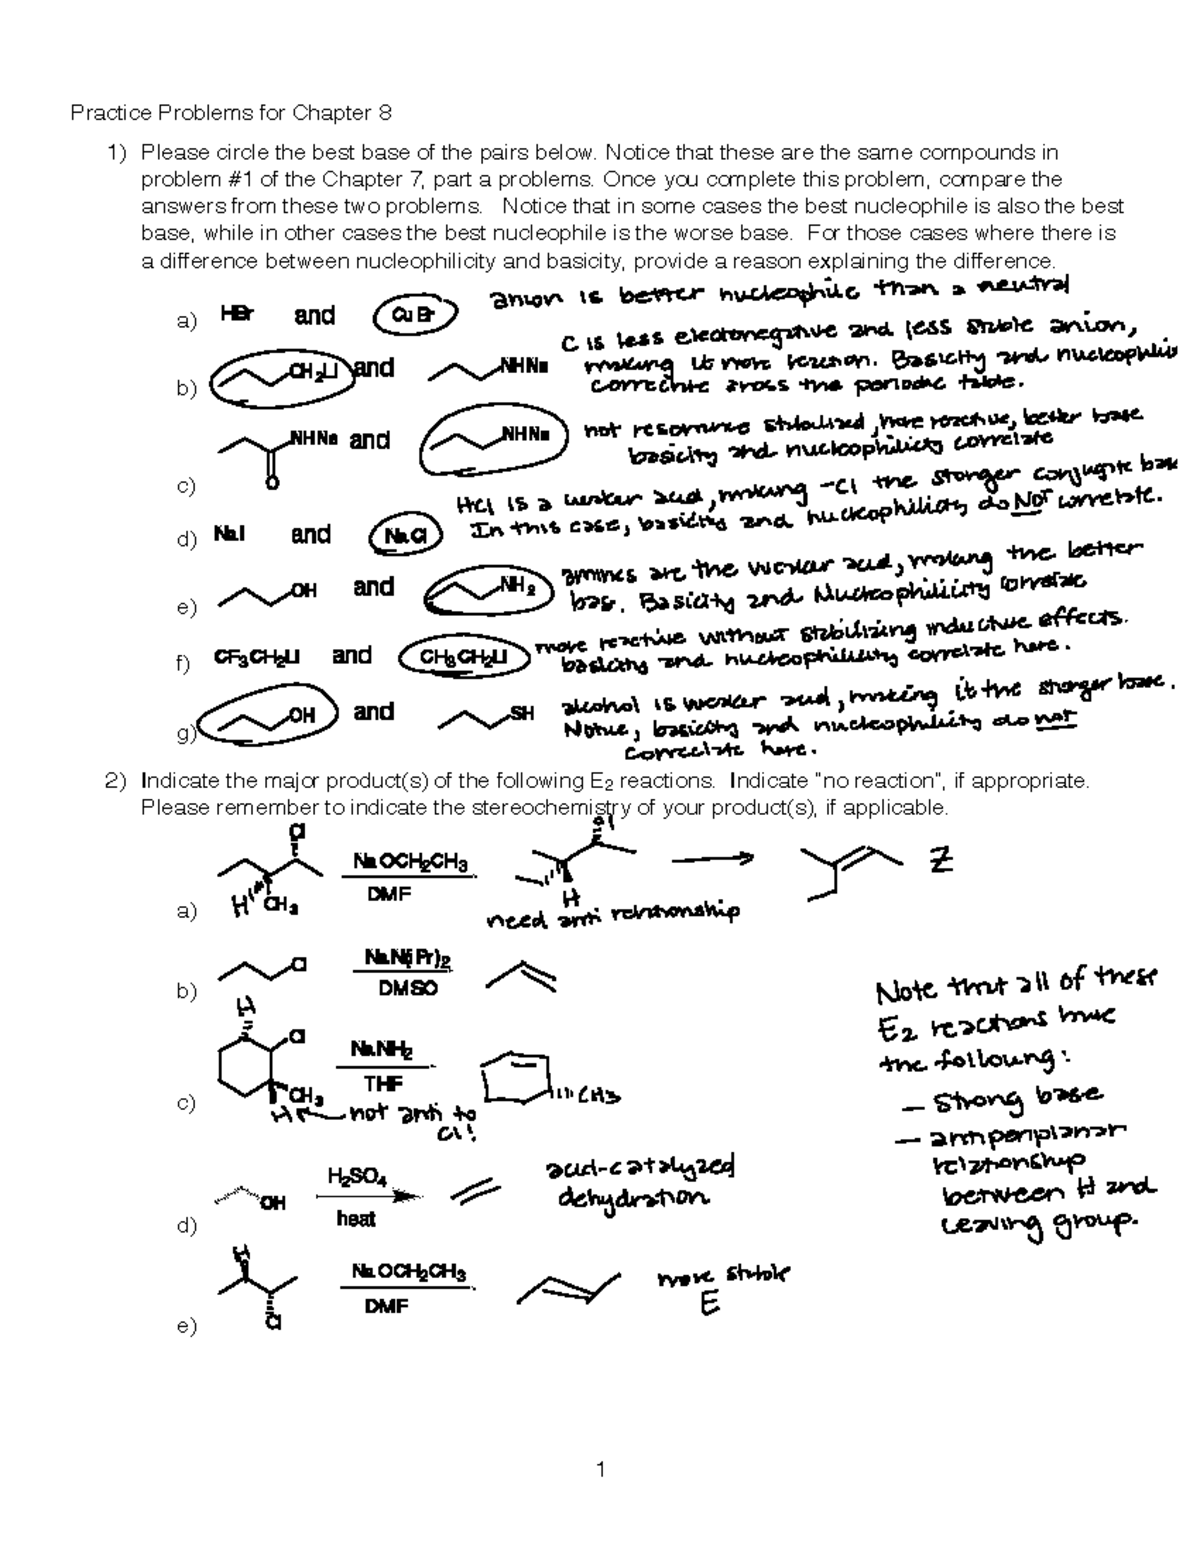 Practice Problems for Chapter 8
1) Please circle the best base of the pairs below. Notice that these are the same compounds in
problem #1 of the Chapter 7, part a problems. Once you complete this problem, compare the
answers from these two problems. Notice that in some cases the best nucleophile is also the best
base, while in other cases the best nucleophile is the worse base. For those cases where there is
a difference between nucleophilicity and basicity, provide a reason explaining the difference.
anion is better nucleophile than a neutral
a) HBr and CuBr
C is less electronegative and less stable anion,
making it more reaction. Basicity and nucleophilic
b) CH2Li and NHNa
correlate across the periodic table.
not resonance stabalized, more reactive, better base
NHNa and NHNa
basicity and nucleophilicity correlate
c) O
HCl is a weaker acid, making -Cl the stronger conjugate base
d) NaI and NaCl
In this case, basicity and nucleophilicity do NOT correlate.
amines are the weaker acid, making the better
e) OH and NH2
base. Basicity and Nucleophilicity correlate
more reactive without stabilizing inductive effects.
f) CF3CH2Li and CH3CH2Li
basicity and nucleophilicity correlate here.
alcohol is weaker acid, making it the stronger base.
g) OH and SH
Notice, basicity and nucleophilicity do not
correlate here.
2) Indicate the major product(s) of the following E2 reactions. Indicate "no reaction", if appropriate.
Please remember to indicate the stereochemistry of your product(s), if applicable.
Cl
NaOCH2CH3
Z
H CH3 DMF H
a)
need anti relationship
Cl NaN(iPr)2
b) DMSO
H
Cl NaNH2
THF
c) CH3 CH3
H not anti to
Cl!
Note that all of these
E2 reactions have
the following:
— Strong base
— antiperiplanar
relationship
between H and
leaving group.
H2SO4
acid-catalyzed
dehydration
OH
d) heat
H
NaOCH2CH3
more stable
E
DMF
e) Cl
1